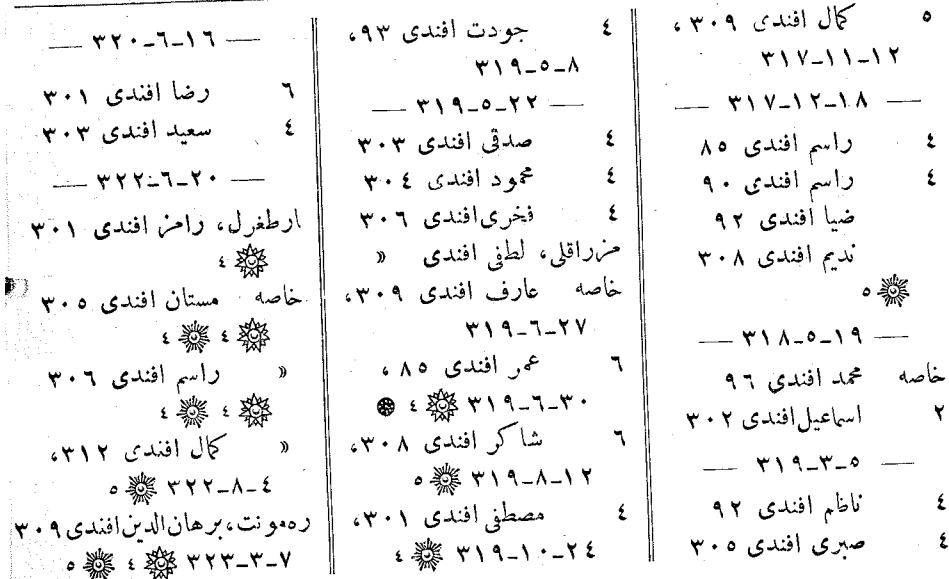 ٥ كمال افندى ٣٠٩،
٣١٧-١١-١٢
— ٣١٧-١٢-١٨ —
٤ راسم افندى ٨٥
٤ راسم افندى ٩٠
ضيا افندى ٩٢
نديم افندى ٣٠٨
٥
— ٣١٨-٥-١٩ —
خاصه محمد افندى ٩٦
٢ اسماعيل افندى ٣٠٢
— ٣١٩-٣-٥ —
٤ ناظم افندى ٩٢
٤ صبرى افندى ٣٠٥
٤ جودت افندى ٩٣،
٣١٩-٥-٨
— ٣١٩-٥-٢٢ —
٤ صدقى افندى ٣٠٣
٤ محمود افندى ٣٠٤
٤ فخرى افندى ٣٠٦
مزراقلى، لطفى افندى »
خاصه عارف افندى ٣٠٩،
٣١٩-٦-٢٧
٦ عمر افندى ٨٥،
٣١٩-٦-٣٠ ٤
٦ شاكر افندى ٣٠٨،
٣١٩-٨-١٢ ٥
٤ مصطفى افندى ٣٠١،
٣١٩-١٠-٢٤ ٤
— ٣٢٠-٦-١٦ —
٦ رضا افندى ٣٠١
٤ سعيد افندى ٣٠٣
— ٣٢٢-٦-٢٠ —
ارطغرل، رامز افندى ٣٠١
٤
خاصه مستان افندى ٣٠٥
٤ ٤
» راسم افندى ٣٠٦
٤ ٤
» كمال افندى ٣١٢،
٣٢٢-٨-٤ ٥
ره‌مونت، برهان الدين افندى ٣٠٩
٣٢٣-٣-٧ ٤ ٥